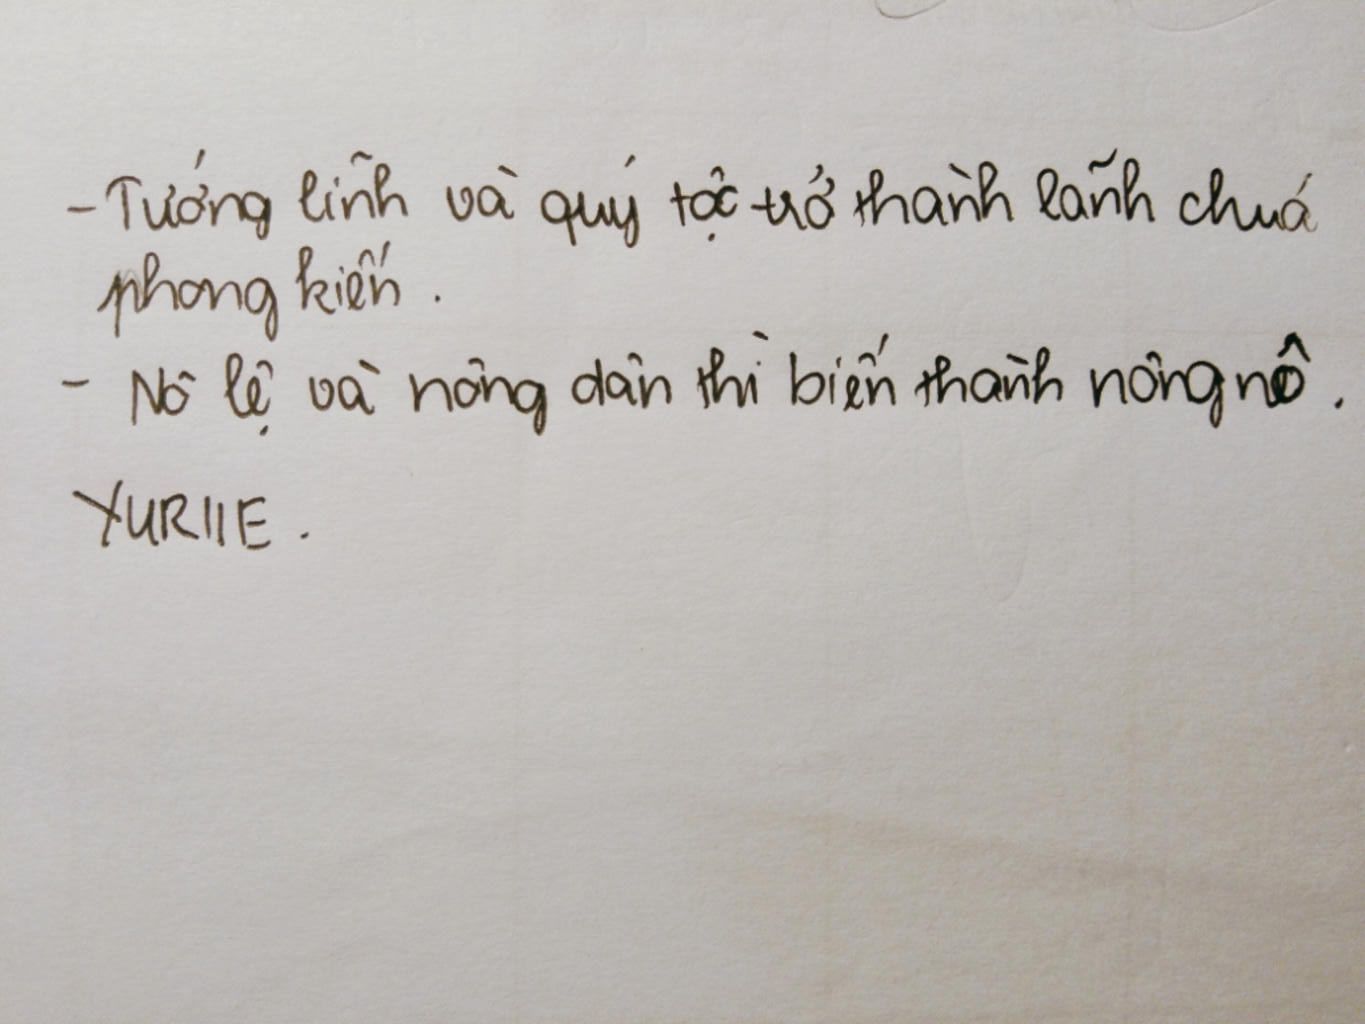 - Tướng lĩnh và quý tộc trở thành lãnh chúa
phong kiến.
- Nô lệ và nông dân thì biến thành nông nô.
YURIIE.